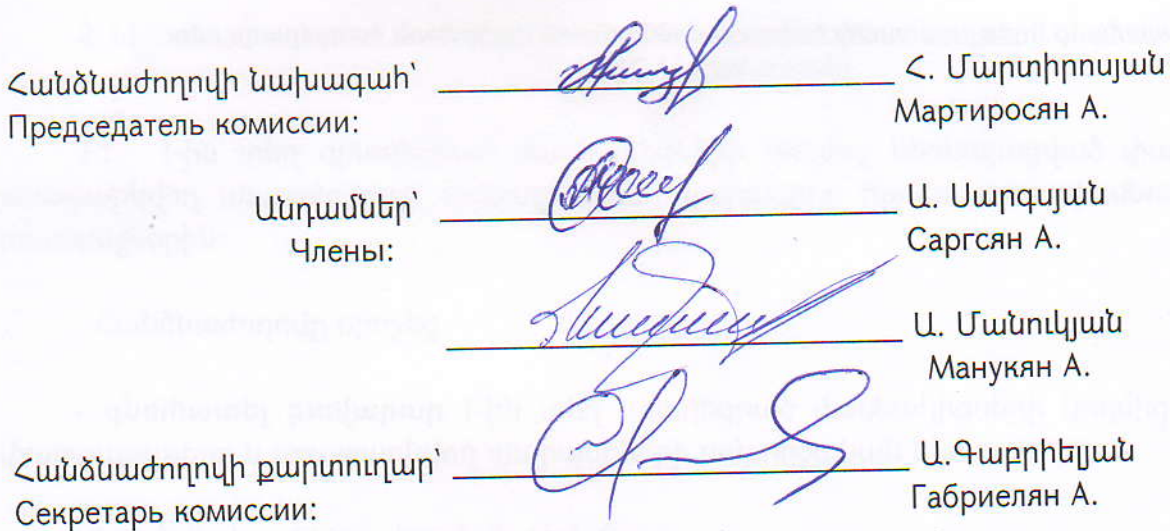 Հանձնաժողովի նախագահ՝ Հ. Մարտիրոսյան
Председатель комиссии: Мартиросян А.
Անդամներ Ա. Սարգսյան
Члены: Саргсян А.
Ա. Մանուկյան
Манукян А.
Հանձնաժողովի քարտուղար՝ Ա. Գաբրիելյան
Секретарь комиссии: Габриелян А.